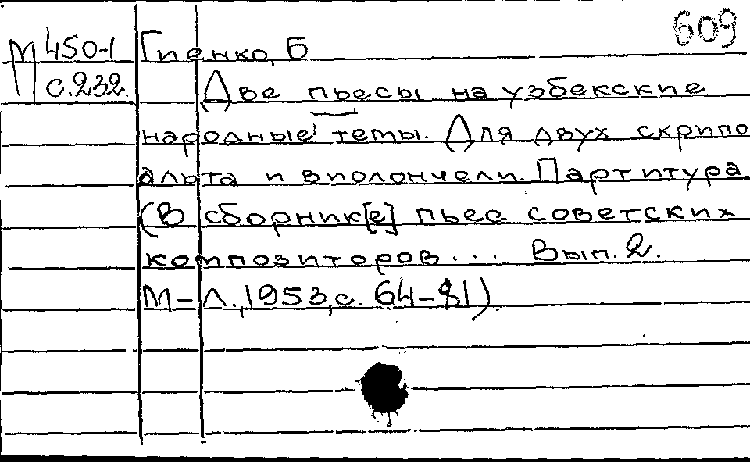 609
М 450-1 Гиенко, Б
с. 232. Две пьесы на узбекские
народные темы. Для двух скрип
альта и виолончели. Партитура
(В сборник[е] пьес советских
композиторов... Вып. 2.
М-Л., 1953, с. 64-81)